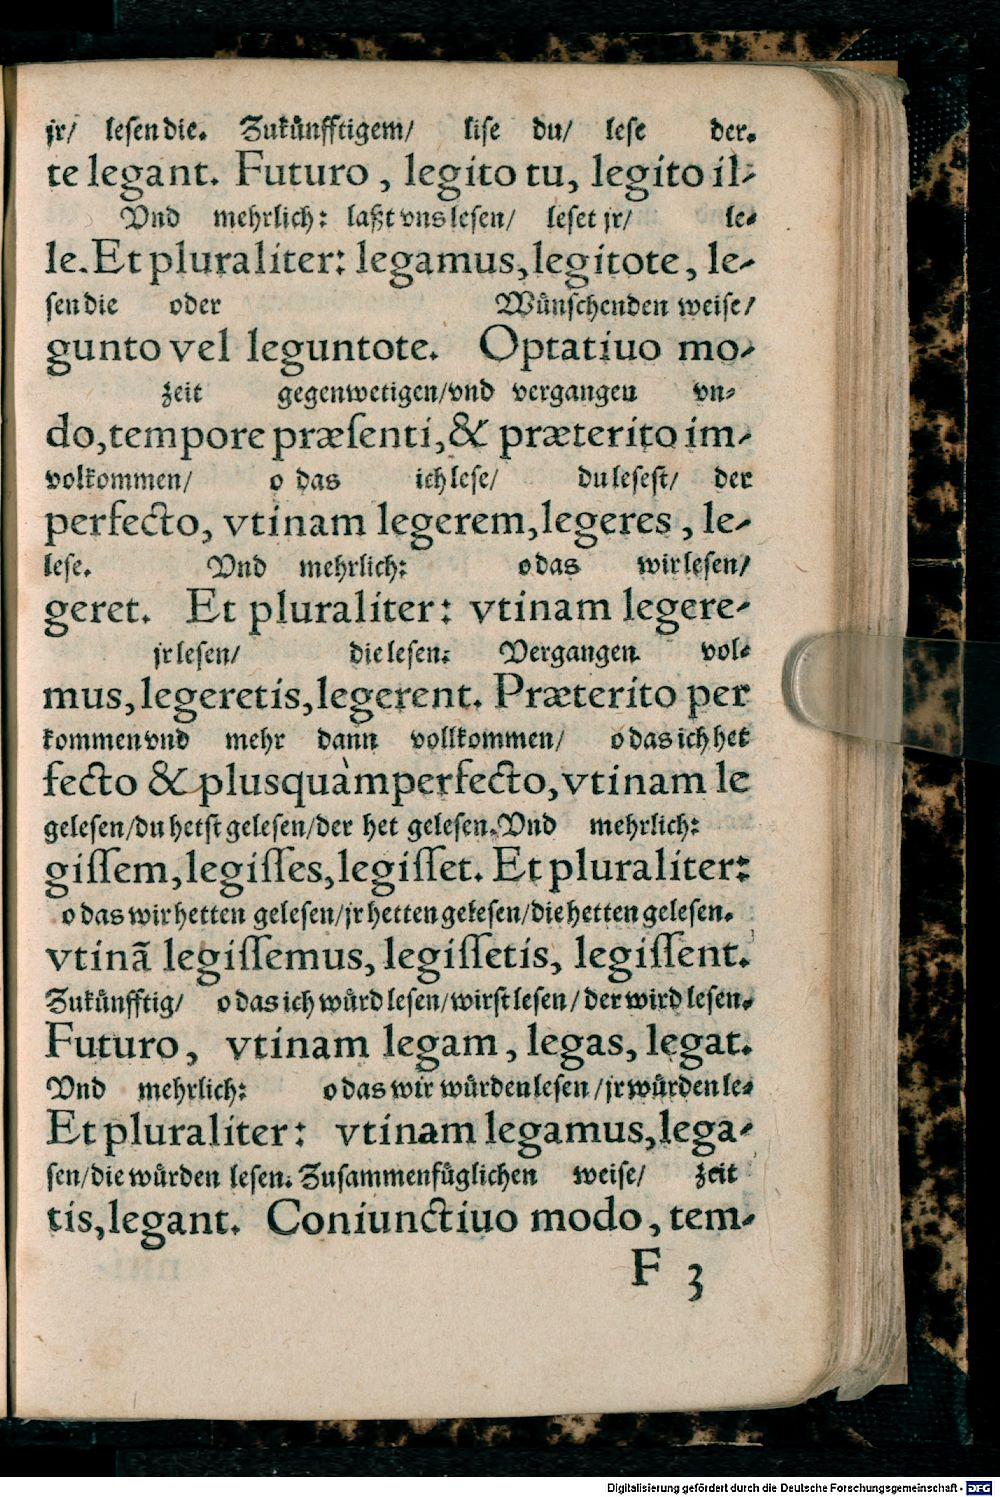 jr/ lesen die. Zukünfftigem/ lise du/ lese der.
te legant. Futuro, legito tu, legito il-
Vnd mehrlich: laßt vns lesen/ leset jr/ le-
le. Et pluraliter: legamus, legitote, le-
sen die oder Wünschenden weise/
gunto vel leguntote. Optatiuo mo-
zeit gegenwetigen/vnd vergangen vn-
do, tempore præſenti, & præterito im-
volkommen/ o das ich lese/ du lesest/ der
perfecto, vtinam legerem, legeres, le-
lese. Vnd mehrlich: o das wir lesen/
geret. Et pluraliter: vtinam legere-
jr lesen/ die lesen. Vergangen vol-
mus, legeretis, legerent. Præterito per
kommen vnd mehr dann vollkommen/ o das ich het
fecto & plusquàmperfecto, vtinam le
gelesen/du hetst gelesen/der het gelesen. Vnd mehrlich:
giſſem, legiſſes, legiſſet. Et pluraliter:
o das wir hetten gelesen/jr hetten gelesen/die hetten gelesen.
vtinã legiſſemus, legiſſetis, legiſſent.
Zukünfftig/ o das ich würd lesen/wirst lesen/der wird lesen.
Futuro, vtinam legam, legas, legat.
Vnd mehrlich: o das wir würden lesen/jr würden le-
Et pluraliter: vtinam legamus, lega-
sen/die würden lesen. Zusammenfüglichen weise/ zeit
tis, legant. Coniunctiuo modo, tem-
F 3
Digitalisierung gefördert durch die Deutsche Forschungsgemeinschaft - DFG